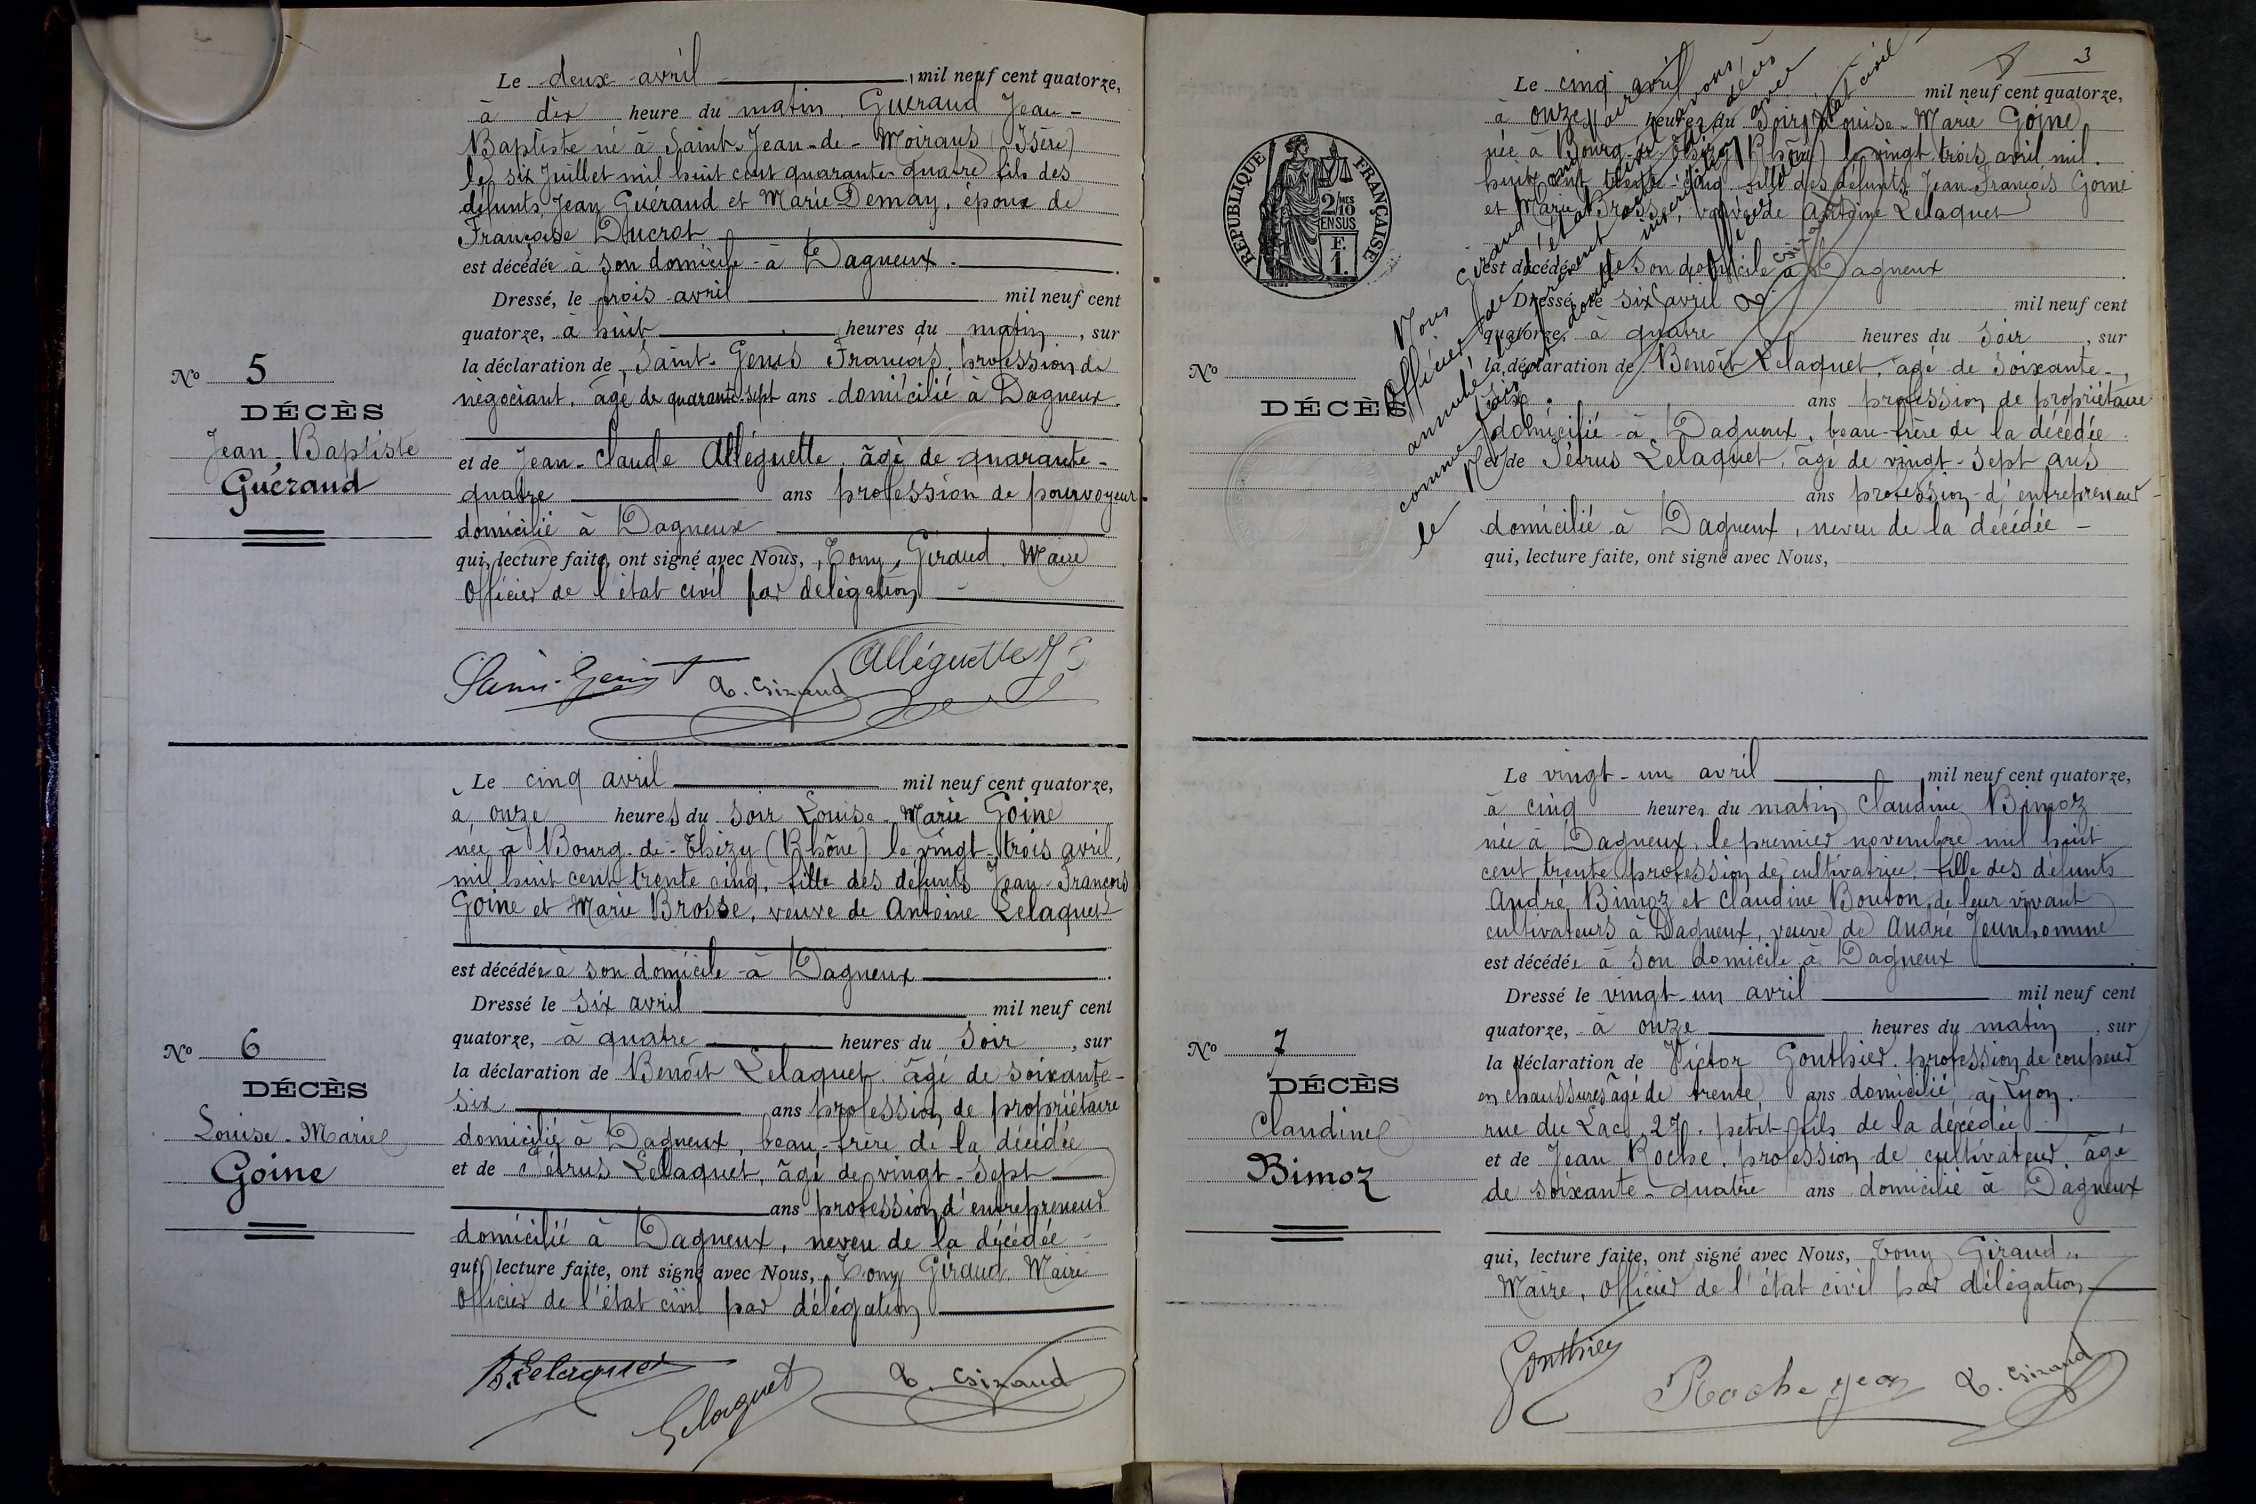 Le deux avril mil neuf cent quatorze,
à dix heure du matin. Guéraud Jean-
Baptiste né à Saint-Jean-de-Moirans (Isère)
le six Juillet mil huit cent quarante-quatre fils des
défunts Jean Guéraud et Marie Demay, époux de
Françoise Ducrot
est décédée à son domicile à Dagneux.
Dressé, le trois avril mil neuf cent
quatorze, à huit heures du matin, sur
la déclaration de Saint-Genis François, profession de
négociant, âgé de quarante-sept ans domicilié à Dagneux.
et de Jean-Claude Alléguette, âgé de quarante-
quatre ans profession de pourvoyeur
domicilié à Dagneux
qui, lecture faite, ont signé avec Nous, Tony, Giraud, Maire
Officier de l'état civil par délégation
No 5
DÉCÈS
Jean-Baptiste
Guéraud
Alléguette J C
T. Giraud
Le cinq avril mil neuf cent quatorze,
à onze heures du soir Louise-Marie Goine
née à Bourg-de-Thizy (Rhône) le vingt-trois avril,
mil huit cent trente cinq, fille des défunts Jean-François
Goine et Marie Brosse, veuve de Antoine Lelaquet
est décédée à son domicile à Dagneux
Dressé le six avril mil neuf cent
quatorze, à quatre heures du soir, sur
la déclaration de Benoît Lelaquet âgé de soixante-
six ans profession de propriétaire
domicilié à Dagneux, beau-frère de la décédée
et de Pétrus Lelaquet, âgé de vingt-sept
ans profession d'entrepreneur
domicilié à Dagneux, neveu de la décédée
qui, lecture faite, ont signé avec Nous, Tony Giraud, Maire
Officier de l'état civil par délégation
No 6
DÉCÈS
Louise-Marie
Goine
B. Lelaquet
Lelaquet
T. Giraud
3
Le cinq avril mil neuf cent quatorze,
à onze heures du soir Louise-Marie Goine
née à Bourg-de-Thizy (Rhône) le vingt trois avril mil
huit cent trente-cinq fille des défunts Jean-François Goine
et Marie Brosse, veuve de Antoine Lelaquet
est décédée à son domicile à Dagneux
Dressé le six avril mil neuf cent
quatorze, à quatre heures du soir, sur
la déclaration de Benoît Lelaquet, âgé de soixante-
six ans profession de propriétaire
domicilié à Dagneux, beau-frère de la décédée
et de Pétrus Lelaquet, âgé de vingt-sept ans
ans profession d'entrepreneur
domicilié à Dagneux, neveu de la décédée
qui, lecture faite, ont signé avec Nous,
RÉPUBLIQUE FRANÇAISE
2/10 MES
EN SUS
F.
1.
No
DÉCÈS
Nous Giraud Maire
Officier de l'état civil avons
annulé le présent
comme
le
Le vingt-un avril mil neuf cent quatorze,
à cinq heures du matin Claudine Bimoz
née à Dagneux, le premier novembre mil huit
cent trente profession de cultivatrice fille des défunts
André Bimoz et Claudine Bouton, de leur vivant
cultivateurs à Dagneux, veuve de André Jeunhomme
est décédée à son domicile à Dagneux
Dressé le vingt-un avril mil neuf cent
quatorze, à onze heures du matin, sur
la déclaration de Victor Gonthier, profession de coupeur
en chaussures âgé de trente ans domicilié à Lyon.
rue du Lac, 27. petit fils de la décédée
et de Jean Roche, profession de cultivateur âgé
de soixante-quatre ans domicilié à Dagneux
qui, lecture faite, ont signé avec Nous, Tony Giraud
Maire, Officier de l'état civil par délégation
No 7
DÉCÈS
Claudine
Bimoz
Gonthier
Roche Jean
T. Giraud